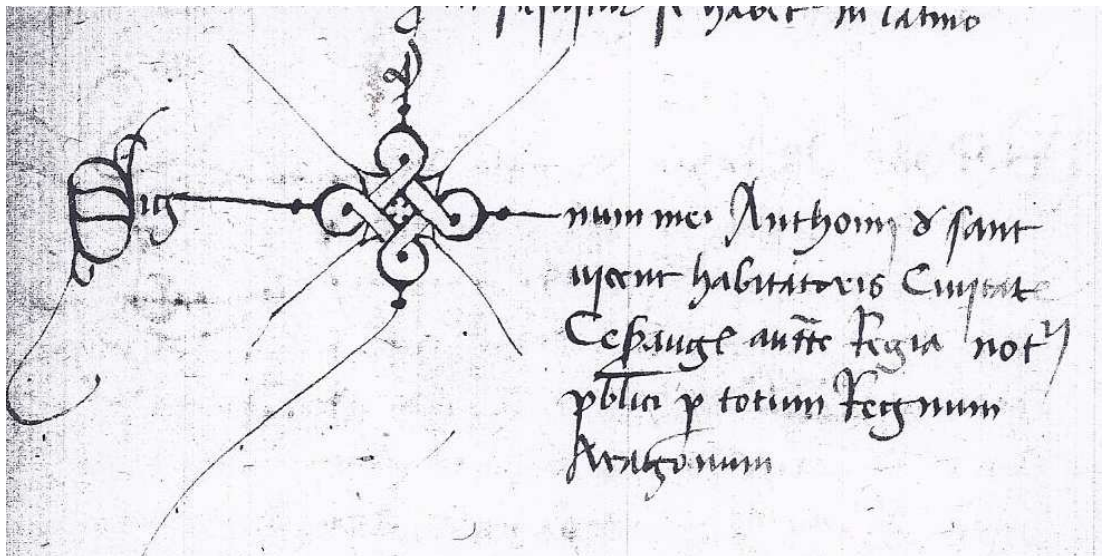 habet in latino
Sig num mei Anthonij d sant
vicent habitatoris Civitate
Cesarauguste auctte Regia not
pblici p totum Regnum
Aragonum